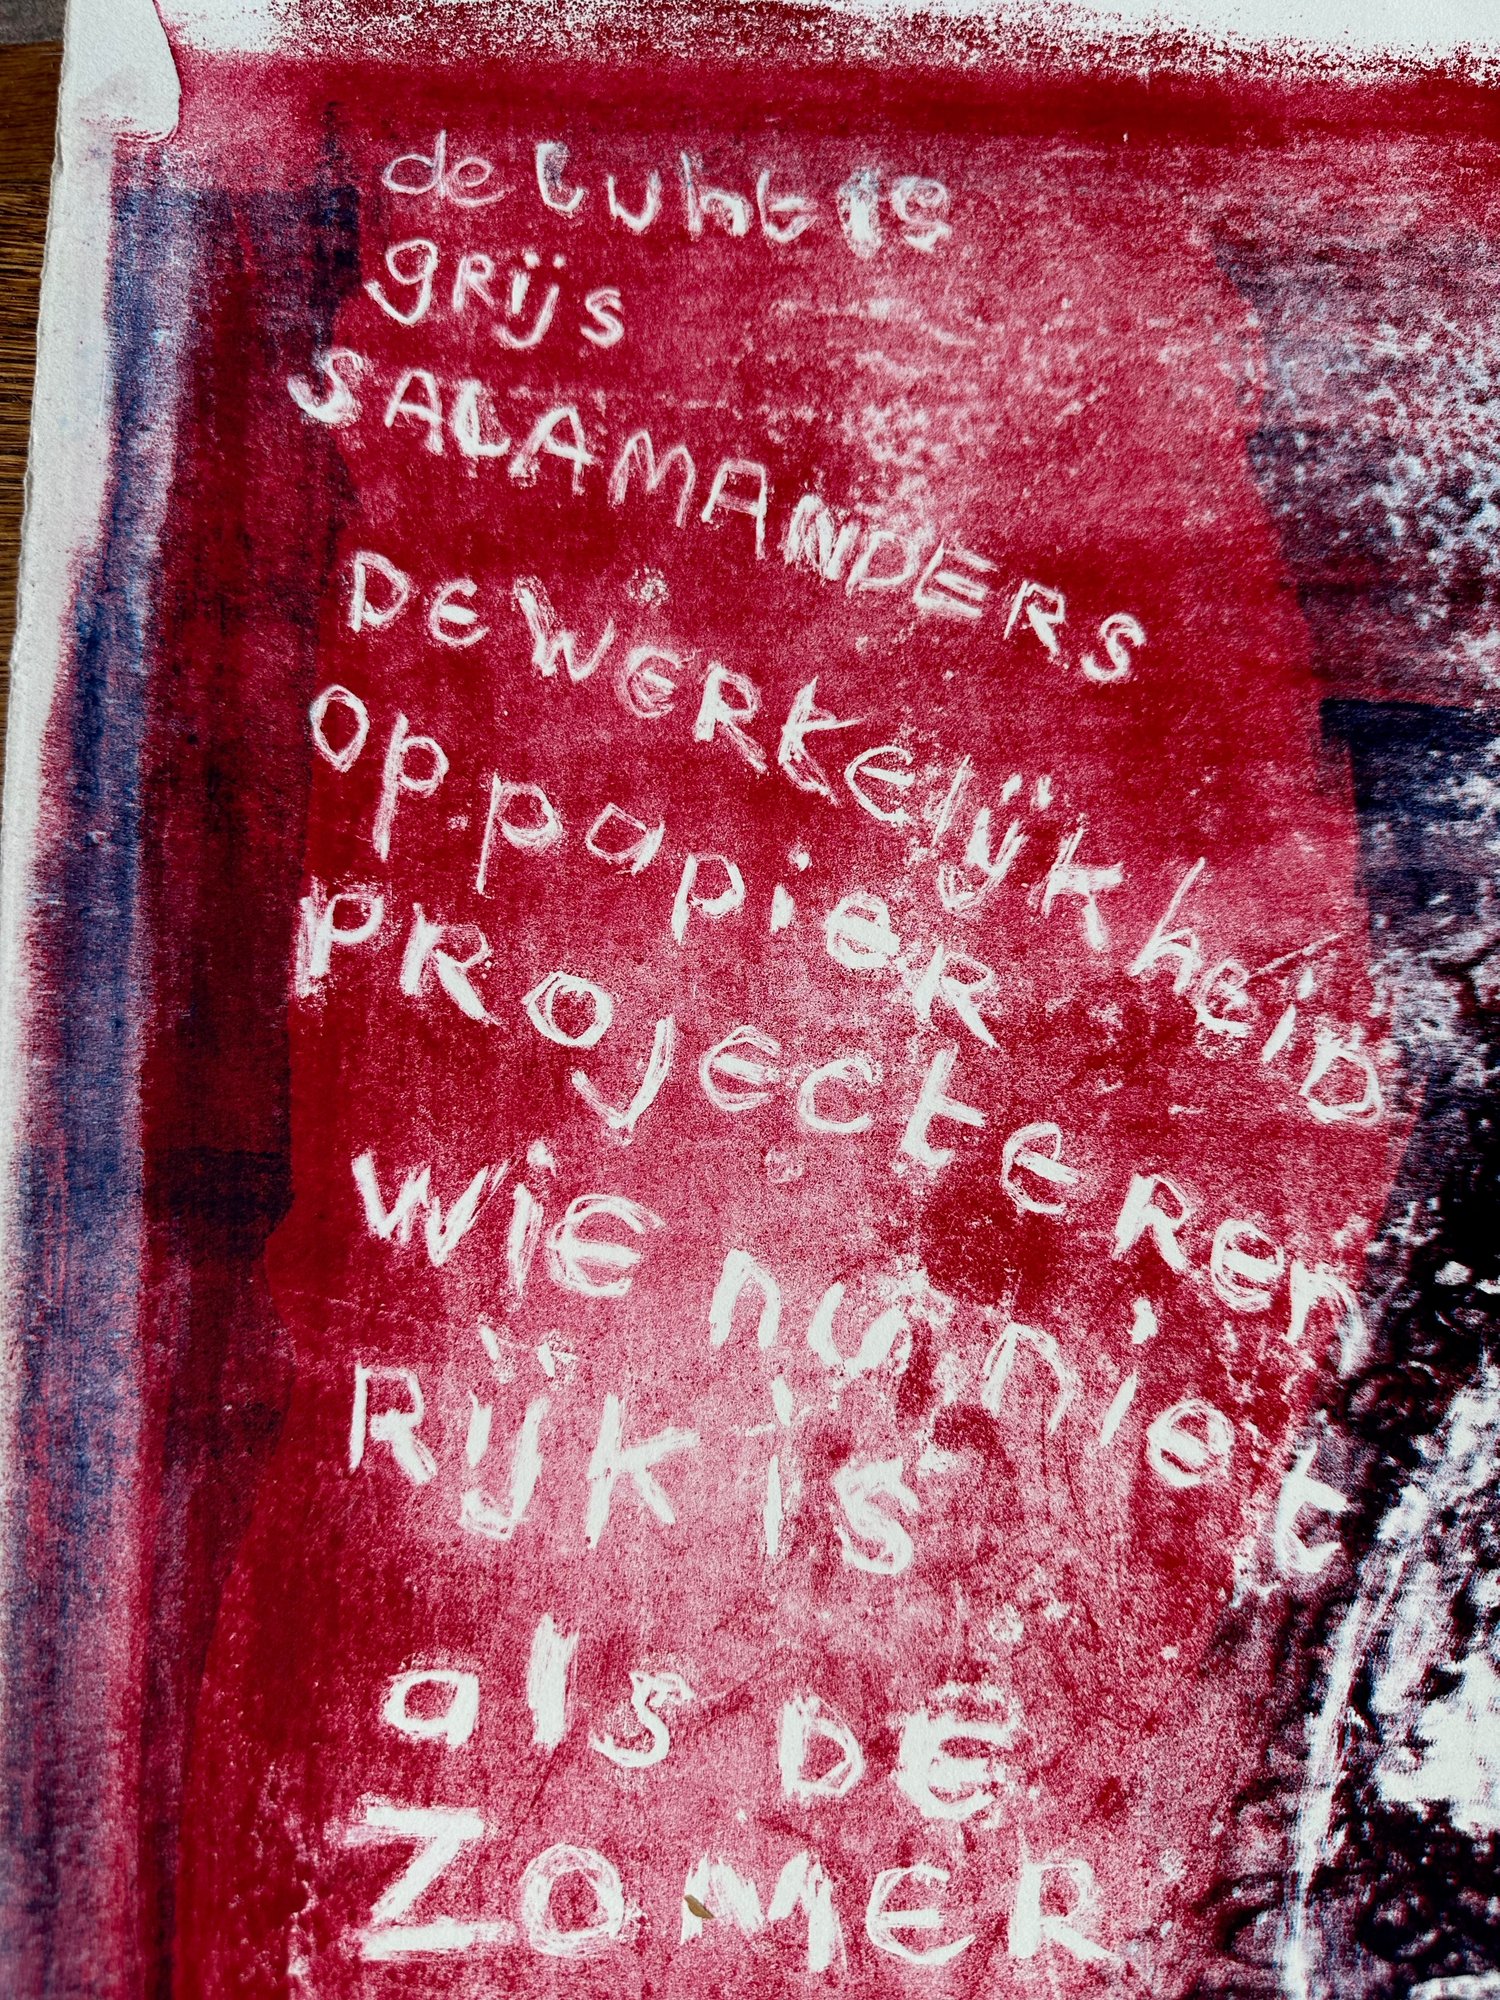 de luht is
grijs
SALAMANDERS
DE WERKELIJKheiD
op papieR
PROJecteren
WIE nu niet
RIJK IS
als DE
ZOMER